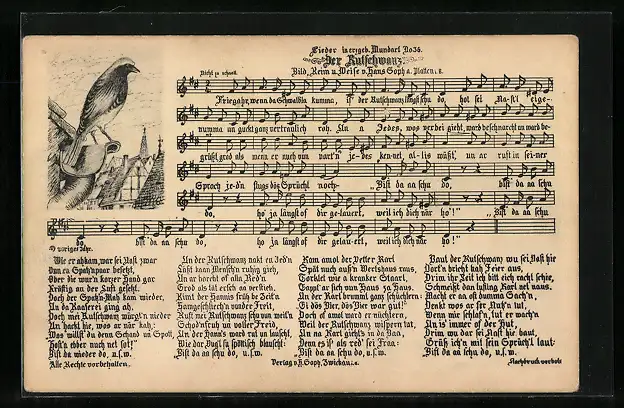 Lieder in erzgeb. Mundart No 36.
Der Rutschwanz
Nicht zu schnell.
Bild, Reim u. Weise v. Hans Soph a. Platten i. E.
Friegahr, wenn da Schwalbla kumma, is der Rutschwanz längst schu do, hot sei Nast'l eige-
numma un guckt ganz vertraulich roh. Un a Jedes, was verbei gieht, ward beschnarcht un ward be-
grüßt grod als wenn er auch vun vart'n je-des kennet, al-lis wüßt', un ar ruft in sei-ner
Sproch jed'n flugs dös Sprüchl noch: "Bist da aa schu do, bist da aa schu
do, ho' ja längst of dir ge-lauert, weil ich dich när ho'!" "Bist da aa schu
do, bist da aa schu do, ho ja längst of dir gelau-ert, weil ich dich när ho'!"
*) voriges Jahr.
Wie er ahkam, war sei Nast zwar
Vun ra Spatz'npaar besetzt,
Ober die wur'n korzer Hand gar
Kräftig an der Luft gesetzt.
Doch der Spatz'n-Mah kam wieder,
Un da Raaferei ging ah,
Doch men Rutschwanz würd'n nie wieder
Un hackt hie, wos ar när kah:
Was willst du denn Schand un Spott,
Host'n ebber noch net sot!"
Bist da wieder do, u.s.w.
Alle Rechte vorbehalten.
Un der Rutschwanz nakt en Jed'n
Läßt kaan Mensch'n ruhig gieh,
Un ar horcht of alla Red'n
Grod als tät er sch aa verstieh.
Kimt der Hannis früh be Zeit'n
Ruft net Rutschwanz schu vun weit'n
Schod'nfruh un voller Freid,
Un der Hann's ward rut un lauscht,
Wie dar Vugl su spöttisch blauscht:
Bist da aa schu do, u.s.w.
Kam amol der Vetter Karl
Spät nuch aus'n Wertshaus raus,
Torklet wie a kranker Staarl,
Un dar Karl brummt ganz schüchtern:
Doch of amol ward er nüchtern,
Weil der Rutschwanz wispern tat,
Un na Karl gieht's in da Baa,
Denn es is' als red' sei Fraa:
Bist da aa schu do, u.s.w.
Verlag v. H. Soph, Zwickau i. S.
Baut der Rutschwanz wu sei Nast hie
Dort'n bricht kah Feier aus,
Drim ihr Zeit ich bitt eich racht schie,
Schmeißt dan lusting Karl net naus.
Macht er aa oft dumma Sach'n,
Denkt wos ar fer Nutz'n tut,
Wenn mir schlof'n, tut er wach'n
Un is' immer of der Hut,
Drim wu dar sei Nast hie baut,
Grüß ich'n mit sein Sprüch'l laut:
Bist da aa schu do, u.s.w.
Nachdruck verbot.